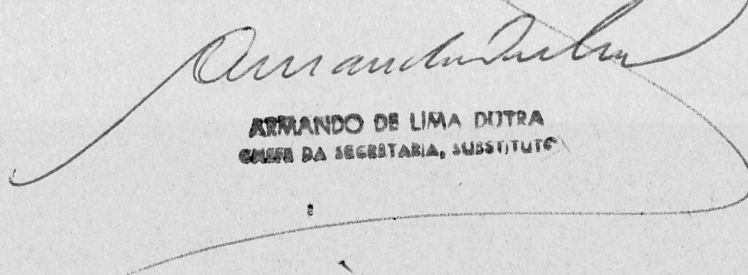 Armando Dutra
ARMANDO DE LIMA DUTRA
CHEFE DA SECRETARIA, SUBSTITUTO